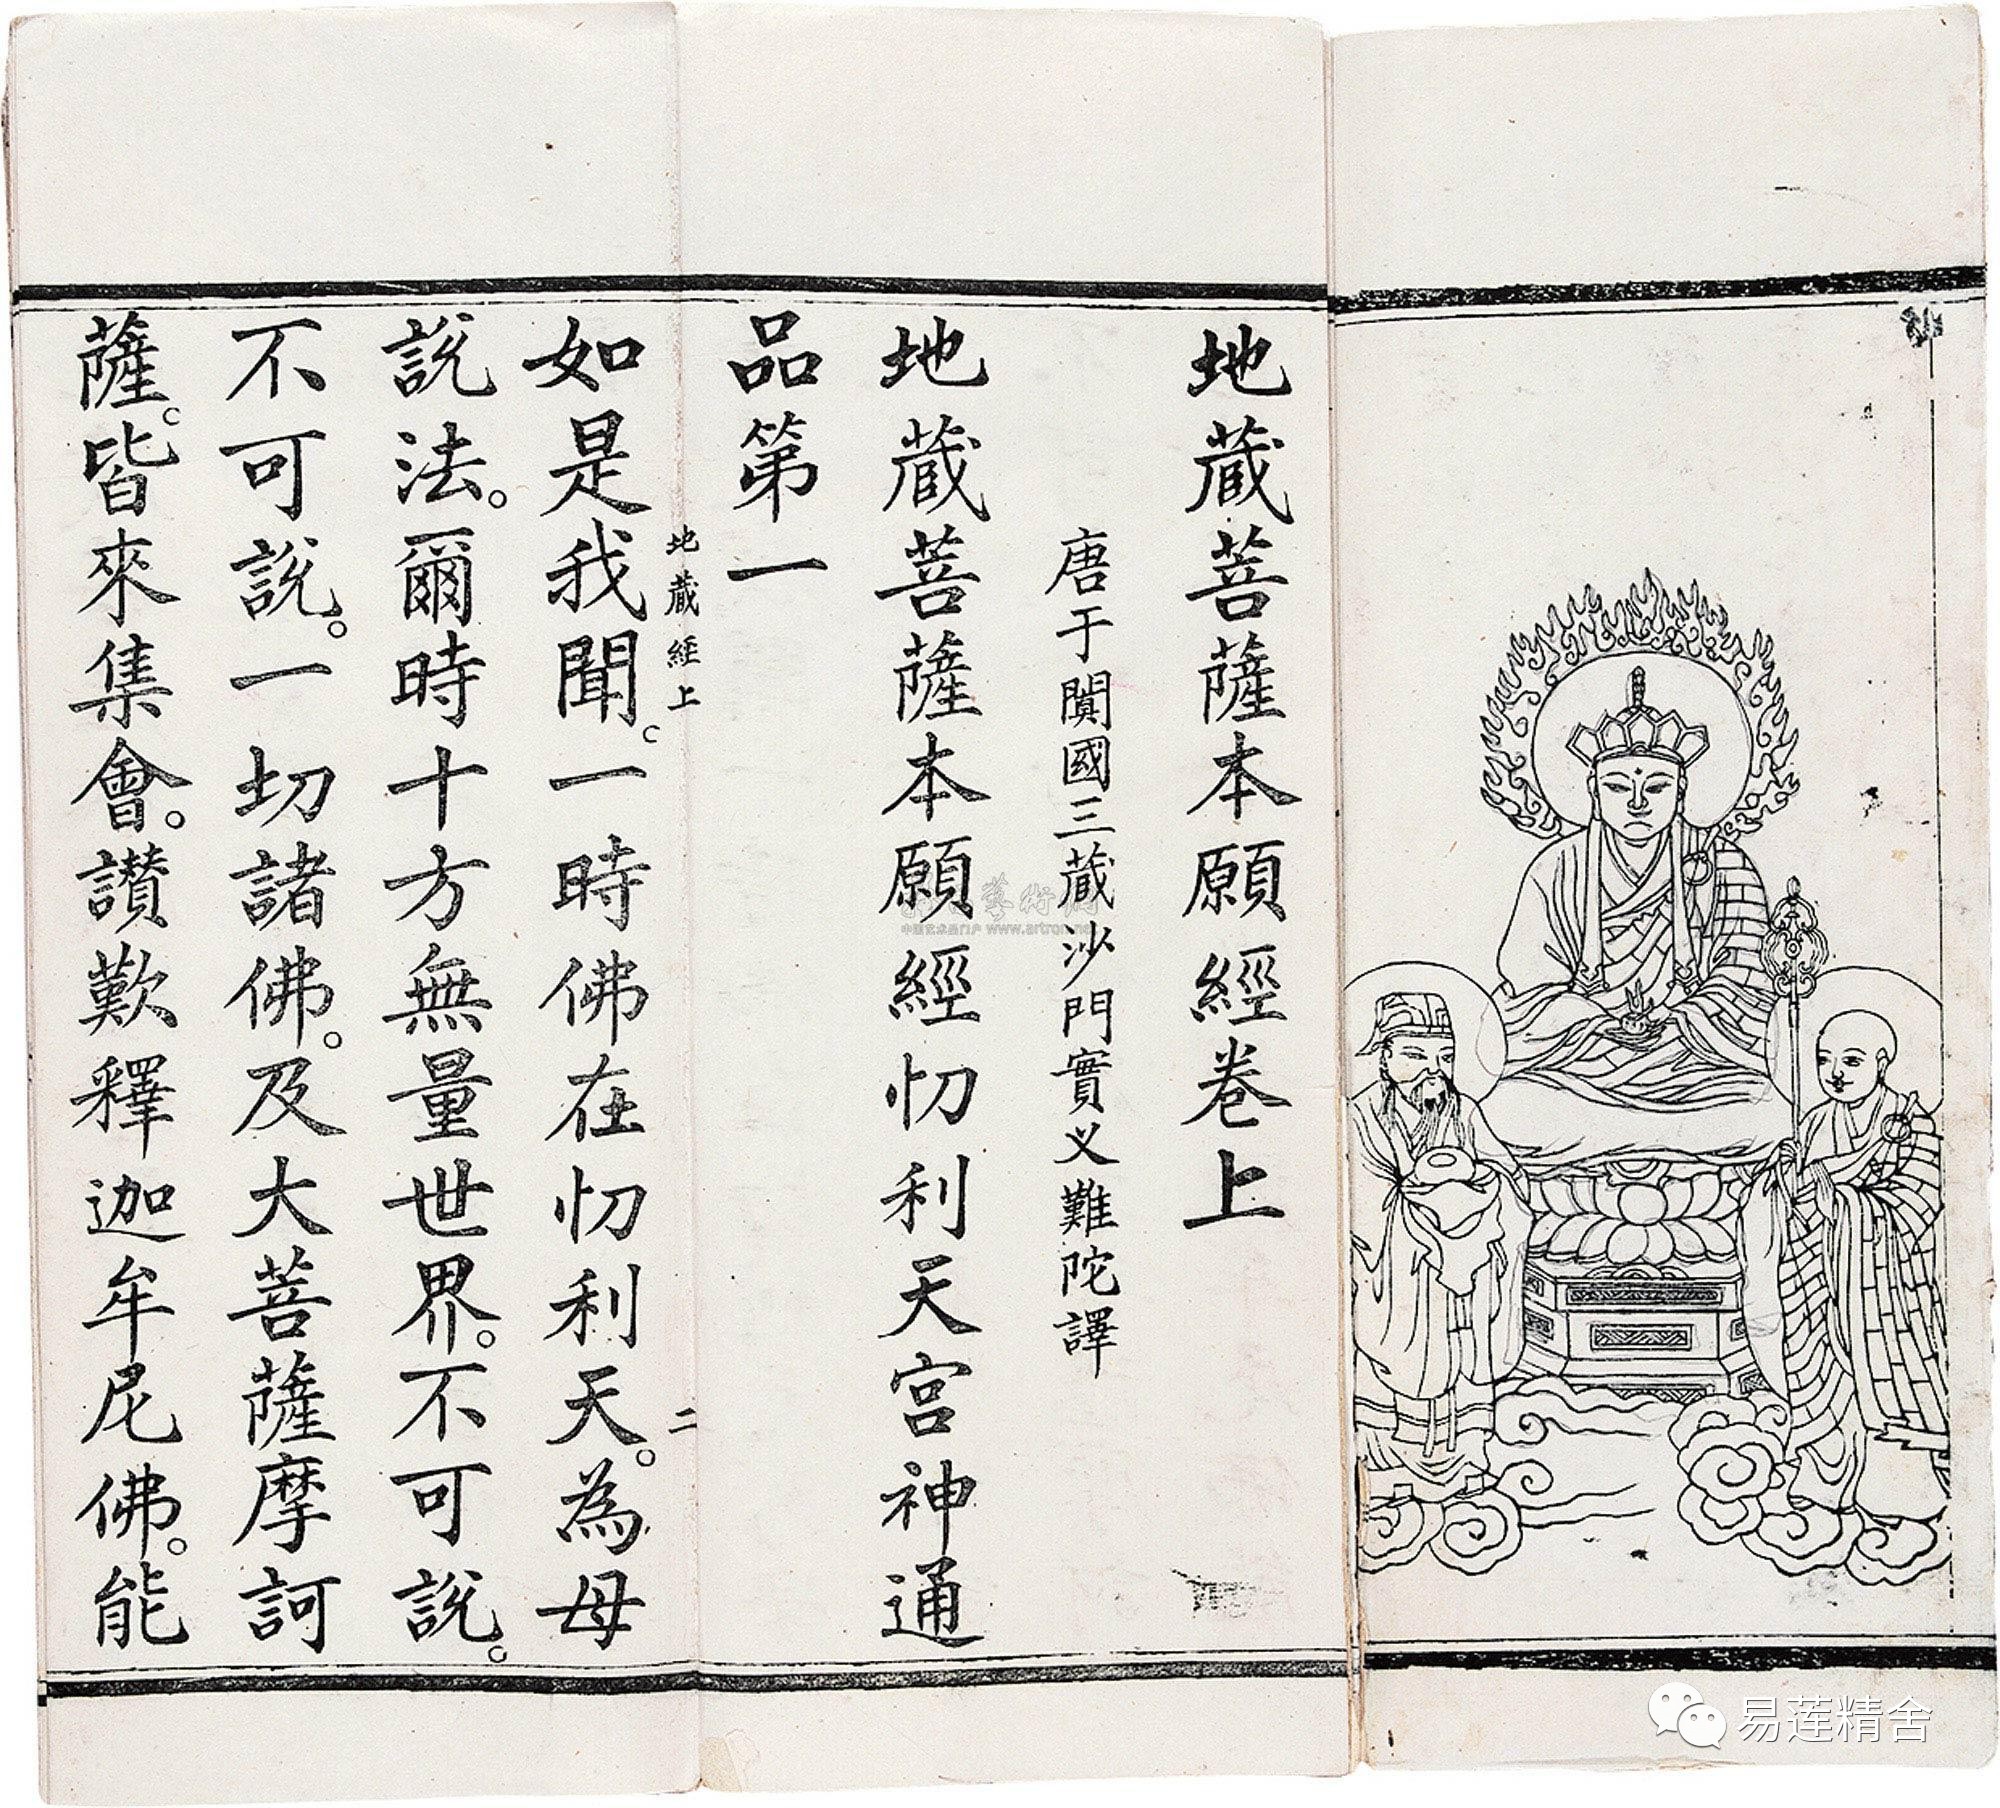 地藏菩薩本願經卷上
唐于闐國三藏沙門實义難陀譯
地藏菩薩本願經忉利天宮神通
品第一
地藏經上
二
如是我聞。一時佛在忉利天。為母
說法。爾時十方無量世界。不可說。
不可說。一切諸佛。及大菩薩摩訶
薩。皆來集會。讃歎釋迦牟尼佛。能
中国艺术品门户 www.artron.net
易莲精舍